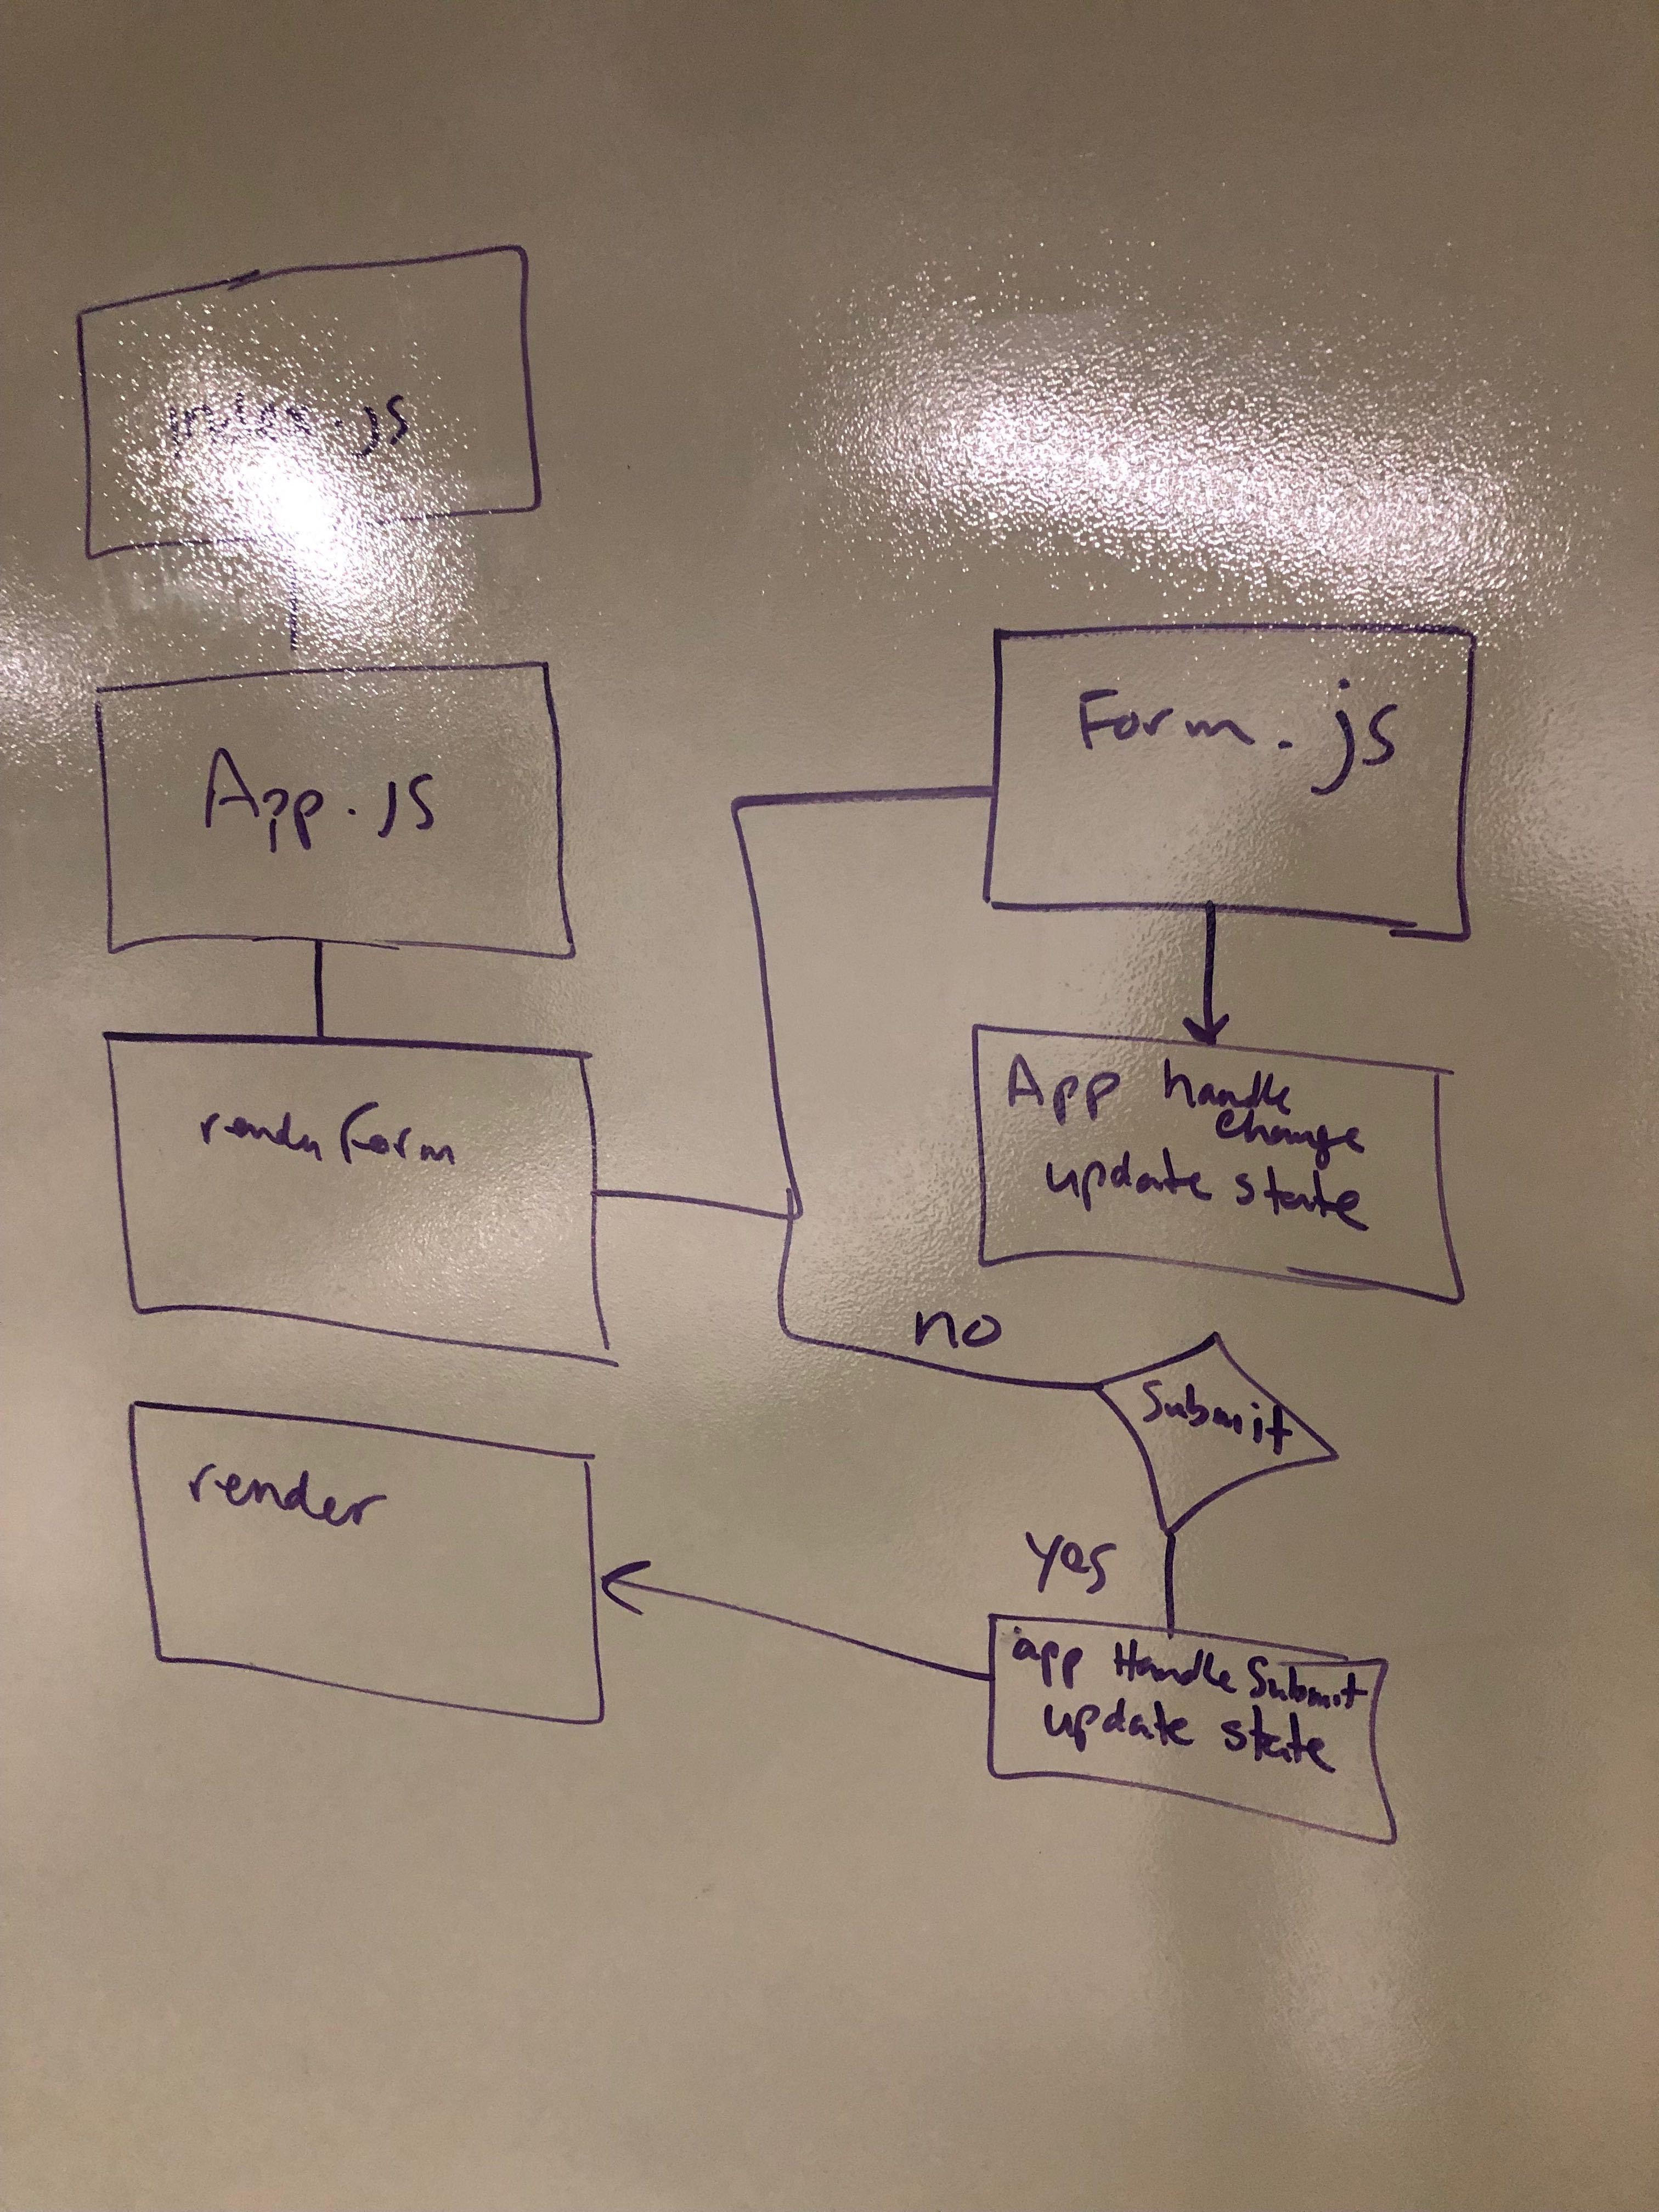 index.js
App.js
render form
render
Form.js
App handle
change
update state
no
Submit
yes
app Handle Submit
update state